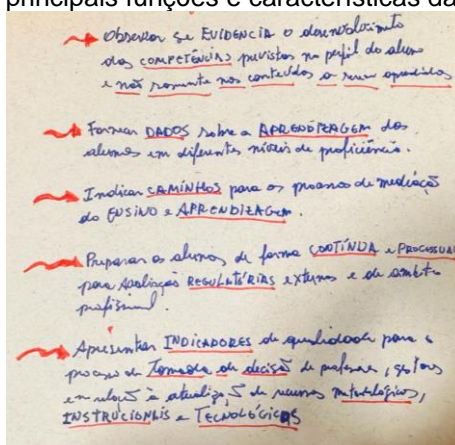 principais funções e características da
Observar se EVIDENCIA o desenvolvimento
das COMPETÊNCIAS previstas no perfil do aluno
e não somente nos conteúdos a serem aprendidos
Fornecer DADOS sobre a APRENDIZAGEM dos
alunos em diferentes níveis de proficiência.
Indicar CAMINHOS para os processos de mediação
do ENSINO e APRENDIZAGEM.
Preparar os alunos de forma CONTÍNUA e PROCESSUAL
para avaliações REGULATÓRIAS externas e de âmbito
profissional.
Apresentar INDICADORES de qualidade para o
processo de Tomada de decisão de professores, gestores
em relação à atualização de recursos metodológicos,
INSTRUCIONAIS e TECNOLÓGICOS